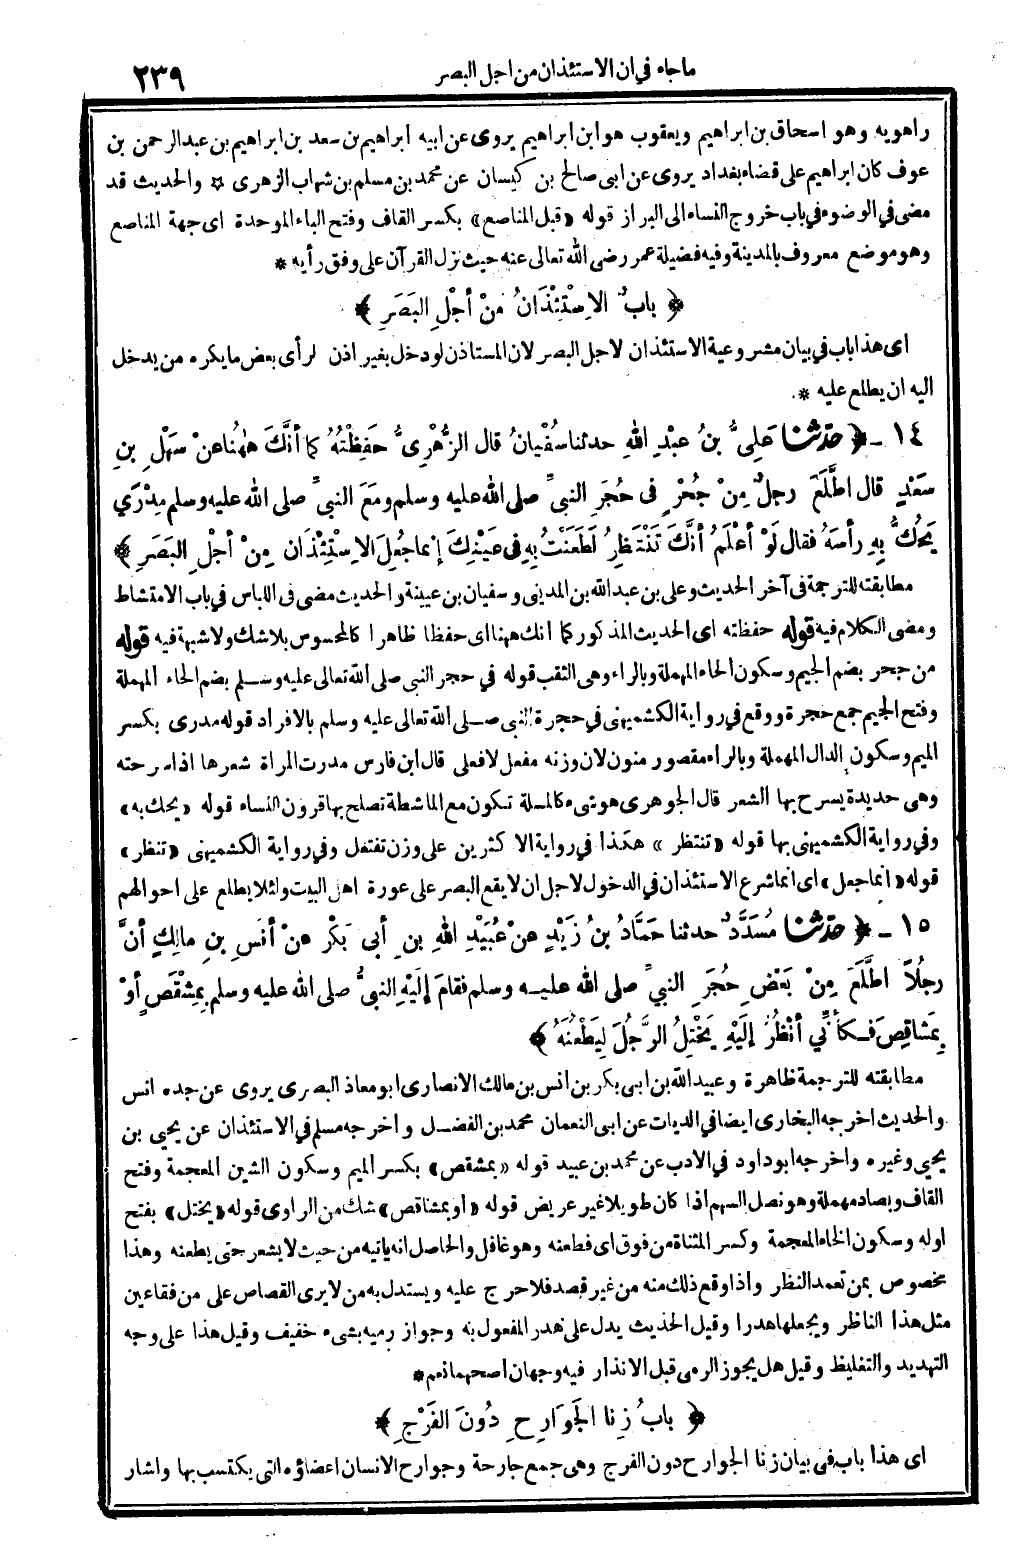 ما جاء في ان الاستئذان من اجل البصر
٢٣٩
راهويه وهو اسحاق بن ابراهيم ويعقوب هو ابن ابراهيم يروى عن ابيه ابراهيم بن سعد بن ابراهيم بن عبد الرحمن بن
عوف كان ابراهيم على قضاء بغداد يروى عن ابى صالح بن كيسان عن محمد بن مسلم بن شهاب الزهرى * والحديث قد
مضى في الوضوء في باب خروج النساء الى البراز قوله «قبل المناصع» بكسر القاف وفتح الباء الموحدة اى جهة المناصع
وهو موضع معروف بالمدينة وفيه فضيلة عمر رضى الله تعالى عنه حيث نزل القرآن على وفق رأيه *
﴿ بابُ الِاسْتِئْذَانُ مِنْ أجْلِ البَصَرِ ﴾
اى هذا باب في بيان مشروعية الاستئذان لاجل البصر لان المستاذن لو دخل بغير اذن لرأى بعض ما يكره من يدخل
اليه ان يطلع عليه *
١٤ - ﴿ حدّثنا عَلِىُّ بنُ عبْدِ اللهِ حدثنا سُفْيانُ قال الزُّهْرِىُّ حَفِظْتُهُ كما أنَّكَ هٰهُنا عنْ سَهْلِ بنِ
سَعْدٍ قال اطَّلَعَ رجلٌ مِنْ جُحْرٍ فى حُجَرِ النبىِّ صلى الله عليه وسلم ومَعَ النبىِّ صلى الله عليه وسلم مِدْرًى
يَحُكُّ بِهِ رأسَهُ فقال لَوْ أعْلَمُ أنَّكَ تَنْتَظِرُ لَطَعَنْتُ بِهِ فى عَيْنِكَ إنما جُعِلَ الِاسْتِئْذَانُ مِنْ أجْلِ البَصَرِ ﴾
مطابقته للترجمة فى آخر الحديث وعلى بن عبد الله بن المدينى وسفيان بن عيينة والحديث مضى فى اللباس في باب الامتشاط
ومضى الكلام فيه قوله حفظته اى الحديث المذكور كما انك ههنا اى حفظا ظاهرا كالمحسوس بلا شك ولا شبهة فيه قوله
من جحر بضم الجيم وسكون الحاء المهملة وبالراء وهى الثقب قوله في حجر النبى صلى الله تعالى عليه وسلم بضم الحاء المهملة
وفتح الجيم جمع حجرة ووقع في رواية الكشميهنى في حجرة النبى صلى الله تعالى عليه وسلم بالافراد قوله مدرى بكسر
الميم وسكون الدال المهملة وبالراء مقصور منون لان وزنه مفعل لا فعلى قال ابن فارس مدرت المراة شعرها اذا سرحته
وهى حديدة يسرح بها الشعر قال الجوهرى هو شىء كالمسلة تكون مع الماشطة تصلح بها قرون النساء قوله «يحك به»
وفي رواية الكشميهنى بها قوله «تنتظر» هكذا في رواية الاكثرين على وزن تفتعل وفي رواية الكشميهنى «تنظر»
قوله «انما جعل» اى انما شرع الاستئذان في الدخول لاجل ان لا يقع البصر على عورة اهل البيت ولئلا يطلع على احوالهم
١٥ - ﴿ حدّثنا مُسَدَّدٌ حدثنا حَمَّادُ بنُ زَيْدٍ عنْ عُبَيْدِ اللهِ بنِ أبى بَكْرٍ عنْ أنَسِ بنِ مالِكٍ أنَّ
رجُلاً اطَّلَعَ مِنْ بَعْضِ حُجَرِ النبىِّ صلى الله عليه وسلم فقامَ إلَيْهِ النبىُّ صلى الله عليه وسلم بِمِشْقَصٍ أوْ
بِمَشاقِصَ فكأنِّي أنْظُرُ إلَيْهِ يَخْتِلُ الرَّجُلَ لِيَطْعُنَهُ ﴾
مطابقته للترجمة ظاهرة وعبيد الله بن ابى بكر بن انس بن مالك الانصارى ابو معاذ البصرى يروى عن جده انس
والحديث اخرجه البخارى ايضا في الديات عن ابى النعمان محمد بن الفضل واخرجه مسلم في الاستئذان عن يحيى بن
يحيى وغيره واخرجه ابو داود في الادب عن محمد بن عبيد قوله «بمشقص» بكسر الميم وسكون الشين المعجمة وفتح
القاف وبصاد مهملة وهو نصل السهم اذا كان طويلا غير عريض قوله «او بمشاقص» شك من الراوى قوله «يختل» بفتح
اوله وسكون الخاء المعجمة وكسر المثناة من فوق اى فطعنه وهو غافل والحاصل انه ياتيه من حيث لا يشعر حتى يطعنه وهذا
مخصوص بمن تعمد النظر واذا وقع ذلك منه من غير قصد فلا حرج عليه ويستدل به من لا يرى القصاص على من فقا عين
مثل هذا الناظر ويجعلها هدرا وقيل الحديث يدل على هدر المفعول به وجواز رميه بشىء خفيف وقيل هذا على وجه
التهديد والتغليظ وقيل هل يجوز الرمى قبل الانذار فيه وجهان اصحهما نعم *
﴿ بابُ زِنا الجَوَارِحِ دُونَ الفَرْجِ ﴾
اى هذا باب فى بيان زنا الجوارح دون الفرج وهى جمع جارحة وجوارح الانسان اعضاؤه التى يكتسب بها واشار